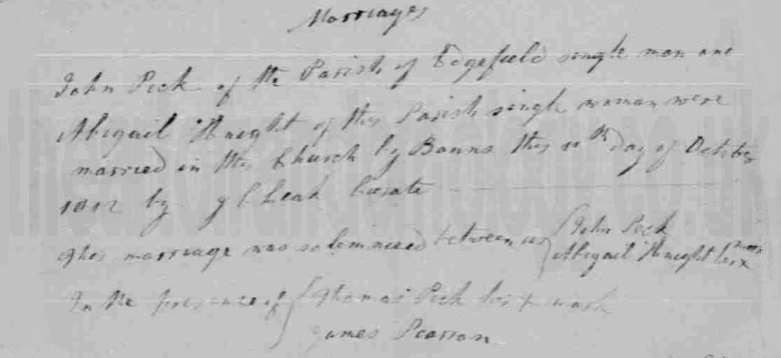 Marriages
John Peck of the Parish of Edgefield single man and
Abigail Knight of this Parish single woman were
married in this Church by Banns this 11th day of October
1812 by J C Leak Curate
This marriage was solemnized between us { John Peck
Abigail Knight her x mark
In the presence of { Thomas Peck his x mark
James Pearson